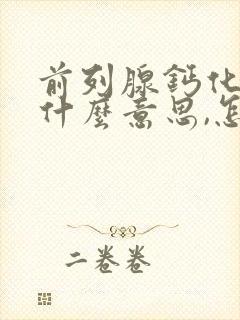 前列腺鈣化
什麼意思,怎
二卷卷